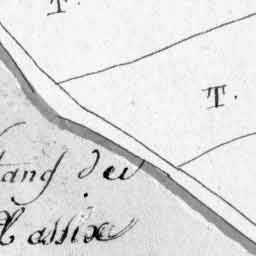 T.
T.
tang du
Massix